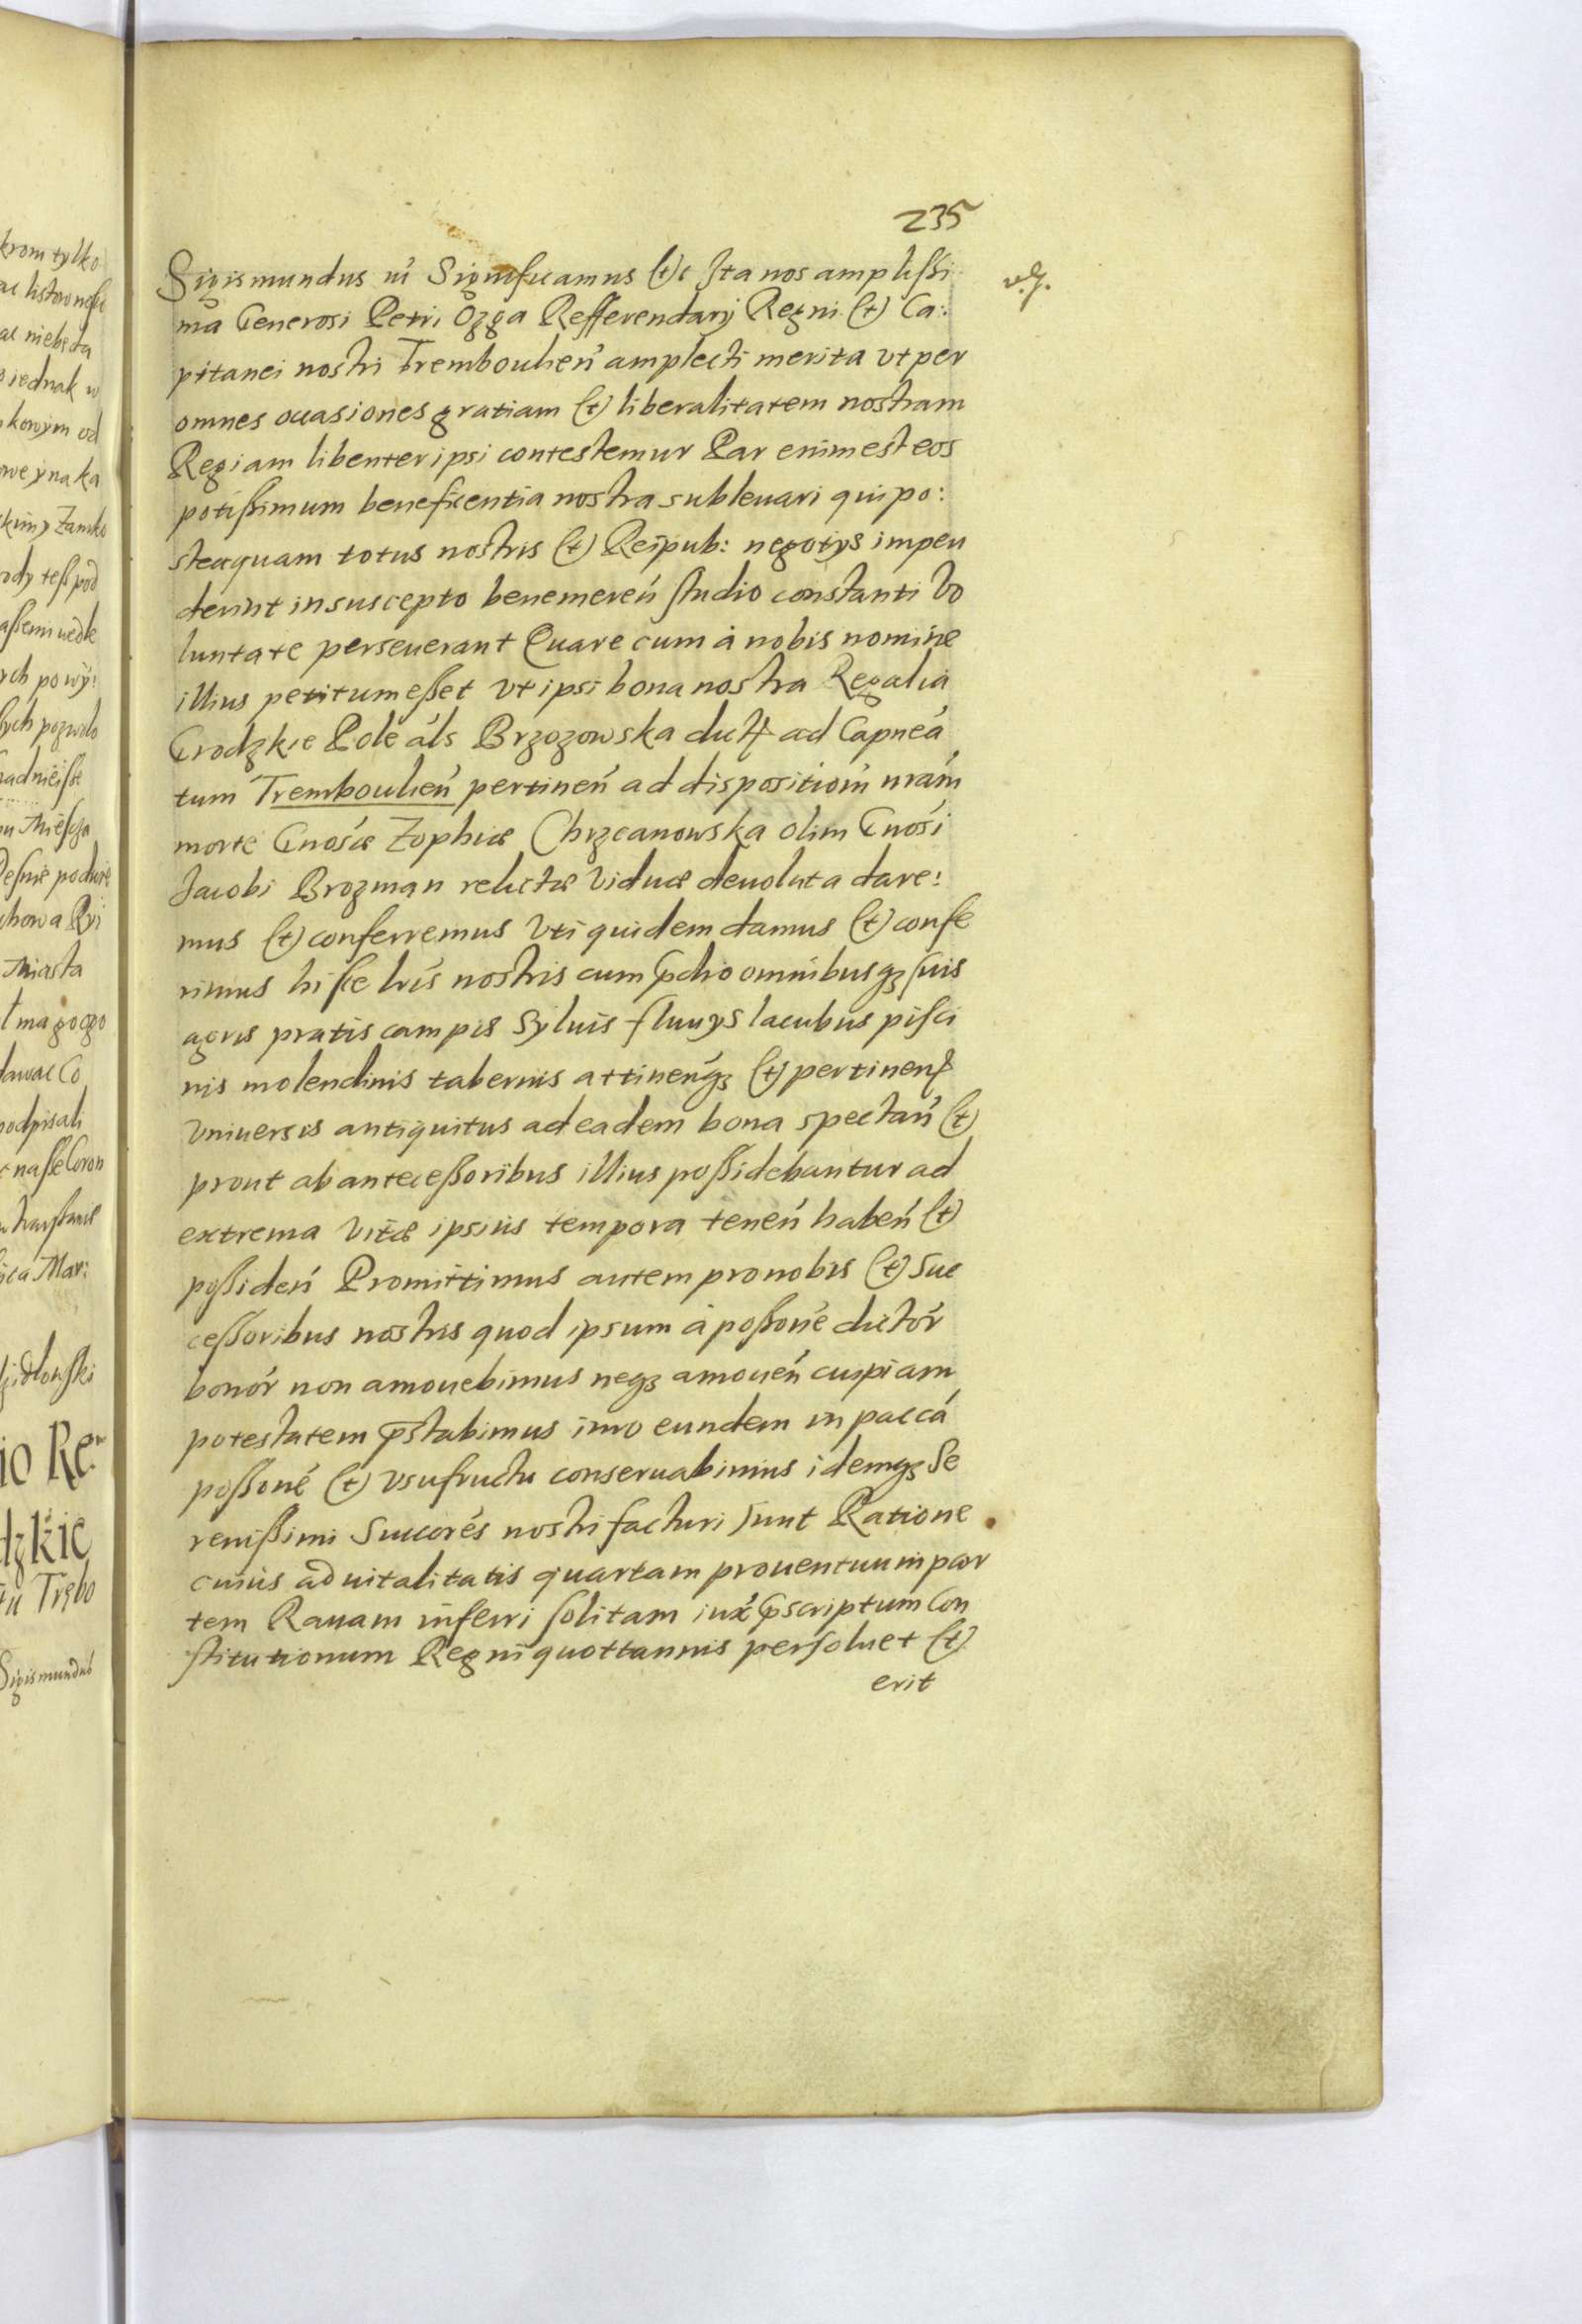 krom tylko
niebęda
jednak w
kowym od
owey na ka
Zamko
rody teß pod
aßemi uedle
ych powy:
lych pozwolo
radnieiße
Mieścza
Miasta
dawac Co
podpisali
naße Coron
lita Mar:
io Re:
dzkie
tu Trębo
Sigismundus
235
Sigismundus iii Significamus (et)c Ita nos amplißi
v.g.
ma Generosi Petri Ozga Refferendarij Regni (et) Ca:
pitanei nostri Tremboulien̄ amplecti merita vt per
omnes occasiones gratiam (et) liberalitatem nostram
Regiam libenter ipsi contestemur Par enim est eos
potißimum beneficentia nostra subleuari qui po:
steaquam totus nostris (et) Reipub: negotijs impen
derint in suscepto benemeren̄ studio constanti Vo
luntate perseuerant Quare cum à nobis nomine
illius petitum eßet vt ipsi bona nostra Regalia
Grodzkie Pole als Brzozowska dicta ad Capnea
tum Tremboulien̄ pertinen̄ ad disposition̄ nram
morte Gnosæ Zophiæ Chrzcanowska olim Gnosi
Jacobi Brozman relictæ Viduæ deuoluta dare:
mus (et) conferremus Vti quidem damus (et) confe
rimus hisce lris nostris cum p̄dio omnibusq3 suis
agris pratis campis syluis fluuys lacubus pisci
nis molendinis tabernis attinen̄q3 (et) pertinen̄
vniuersis antiquitus ad eadem bona spectan̄ (et)
prout ab antecessoribus illius poßidebantur ad
extrema vitæ ipsius tempora tenen̄ haben̄ (et)
poßiden̄ Promittimus autem pro nobis (et) Suc
ceßoribus nostris quod ipsum à poßone dictor
bonor non amouebimus neq3 amouen̄ cuipiam
potestatem p̄stabimus imo eundem in pacca
poßone (et) vsufructu conseruabimus idemq3 Se
renißimi Succores nostri facturi sunt Ratione
cuius aduitalitatis quartam prouentuum par
tem Rauam inferri solitam iux p̄scriptum Con
stitutionum Regni quottannis persoluet (et)
erit